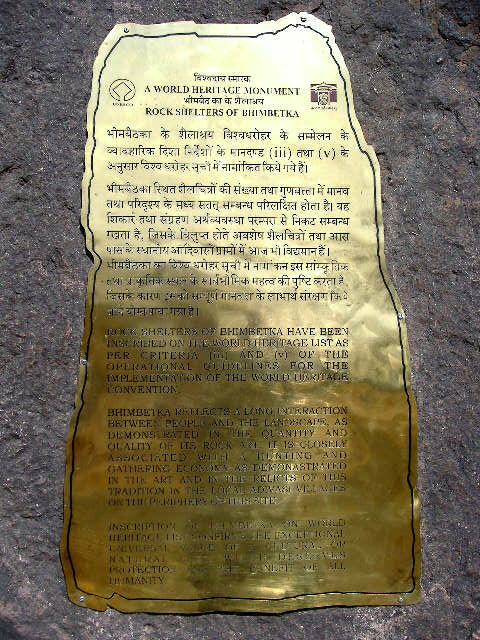 विश्वदाय स्मारक
A WORLD HERITAGE MONUMENT
भीमबैठका के शैलाश्रय
ROCK SHELTERS OF BHIMBETKA
UNESCO
भीमबैठका के शैलाश्रय विश्वधरोहर के सम्मेलन के
व्यावहारिक दिशा निर्देशों के मानदण्ड (iii) तथा (v) के
अनुसार विश्व धरोहर सूची में नामांकित किये गये हैं।
भीमबैठका स्थित शैलचित्रों की संख्या तथा गुणवत्ता में मानव
तथा परिदृश्य के मध्य सतत् सम्बन्ध परिलक्षित होता है। यह
शिकार तथा संग्रहण अर्थव्यवस्था परम्परा से निकट सम्बन्ध
रखता है, जिसके विलुप्त होते अवशेष शैलचित्रों तथा आस
पास के स्थानीय आदिवासी ग्रामों में आज भी विद्यमान हैं।
भीमबैठका का विश्व धरोहर सूची में नामांकन इस सांस्कृतिक
तथा प्राकृतिक स्थल के सार्वभौमिक महत्व की पुष्टि करता है,
जिसके कारण इसका सम्पूर्ण मानवता के लाभार्थ संरक्षण किये
जाने योग्य माना गया है।
ROCK SHELTERS OF BHIMBETKA HAVE BEEN
INSCRIBED ON THE WORLD HERITAGE LIST AS
PER CRITERIA (iii) AND (v) OF THE
OPERATIONAL GUIDELINES FOR THE
IMPLEMENTATION OF THE WORLD HERITAGE
CONVENTION.
BHIMBETKA REFLECTS A LONG INTERACTION
BETWEEN PEOPLE AND THE LANDSCAPE, AS
DEMONSTRATED IN THE QUANTITY AND
QUALITY OF ITS ROCK ART. IT IS CLOSELY
ASSOCIATED WITH A HUNTING AND
GATHERING ECONOMY AS DEMONASTRATED
IN THE ART AND IN THE RELICTS OF THIS
TRADITION IN THE LOCAL ADIVASI VILLAGES
ON THE PERIPHERY OF THIS SITE.
INSCRIPTION OF BHIMBETKA ON WORLD
HERITAGE LIST CONFIRMS THE EXCEPTIONAL
UNIVERSAL VALUE OF A CULTURAL OR
NATURAL DESERVES
PROTECTION FOR THE BENEFIT OF ALL
HUMANITY.